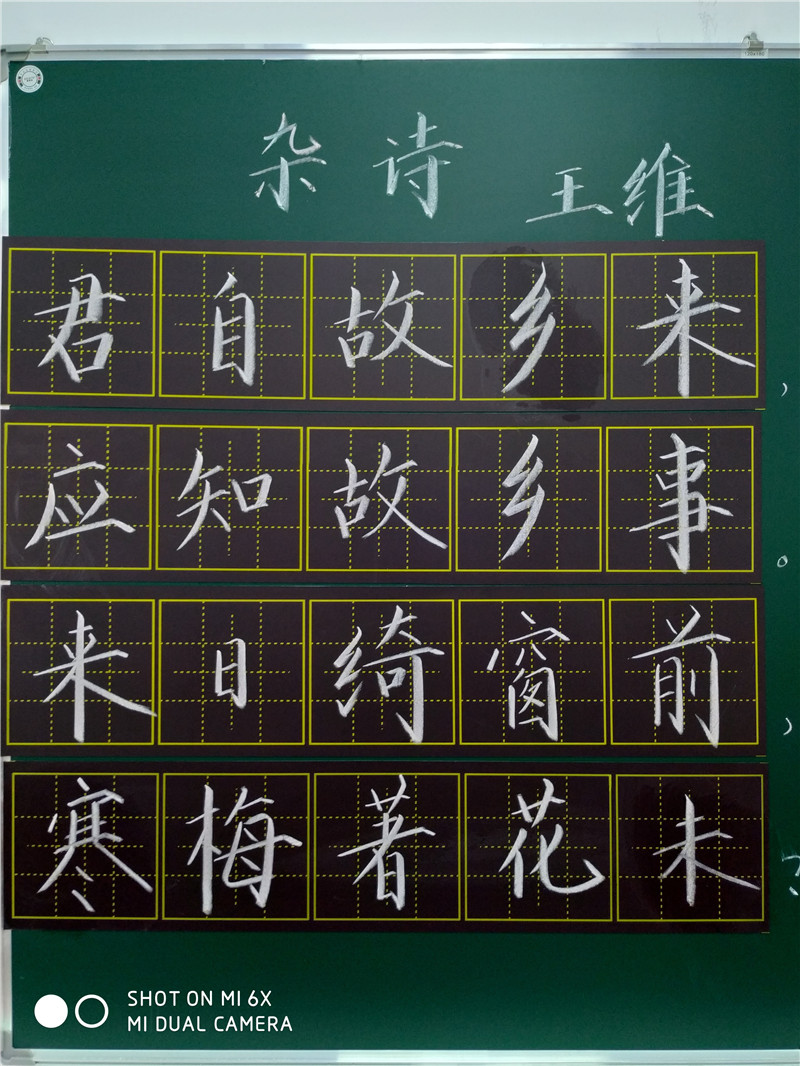 杂诗 王维
君自故乡来，
应知故乡事。
来日绮窗前，
寒梅著花未？
SHOT ON MI 6X
MI DUAL CAMERA